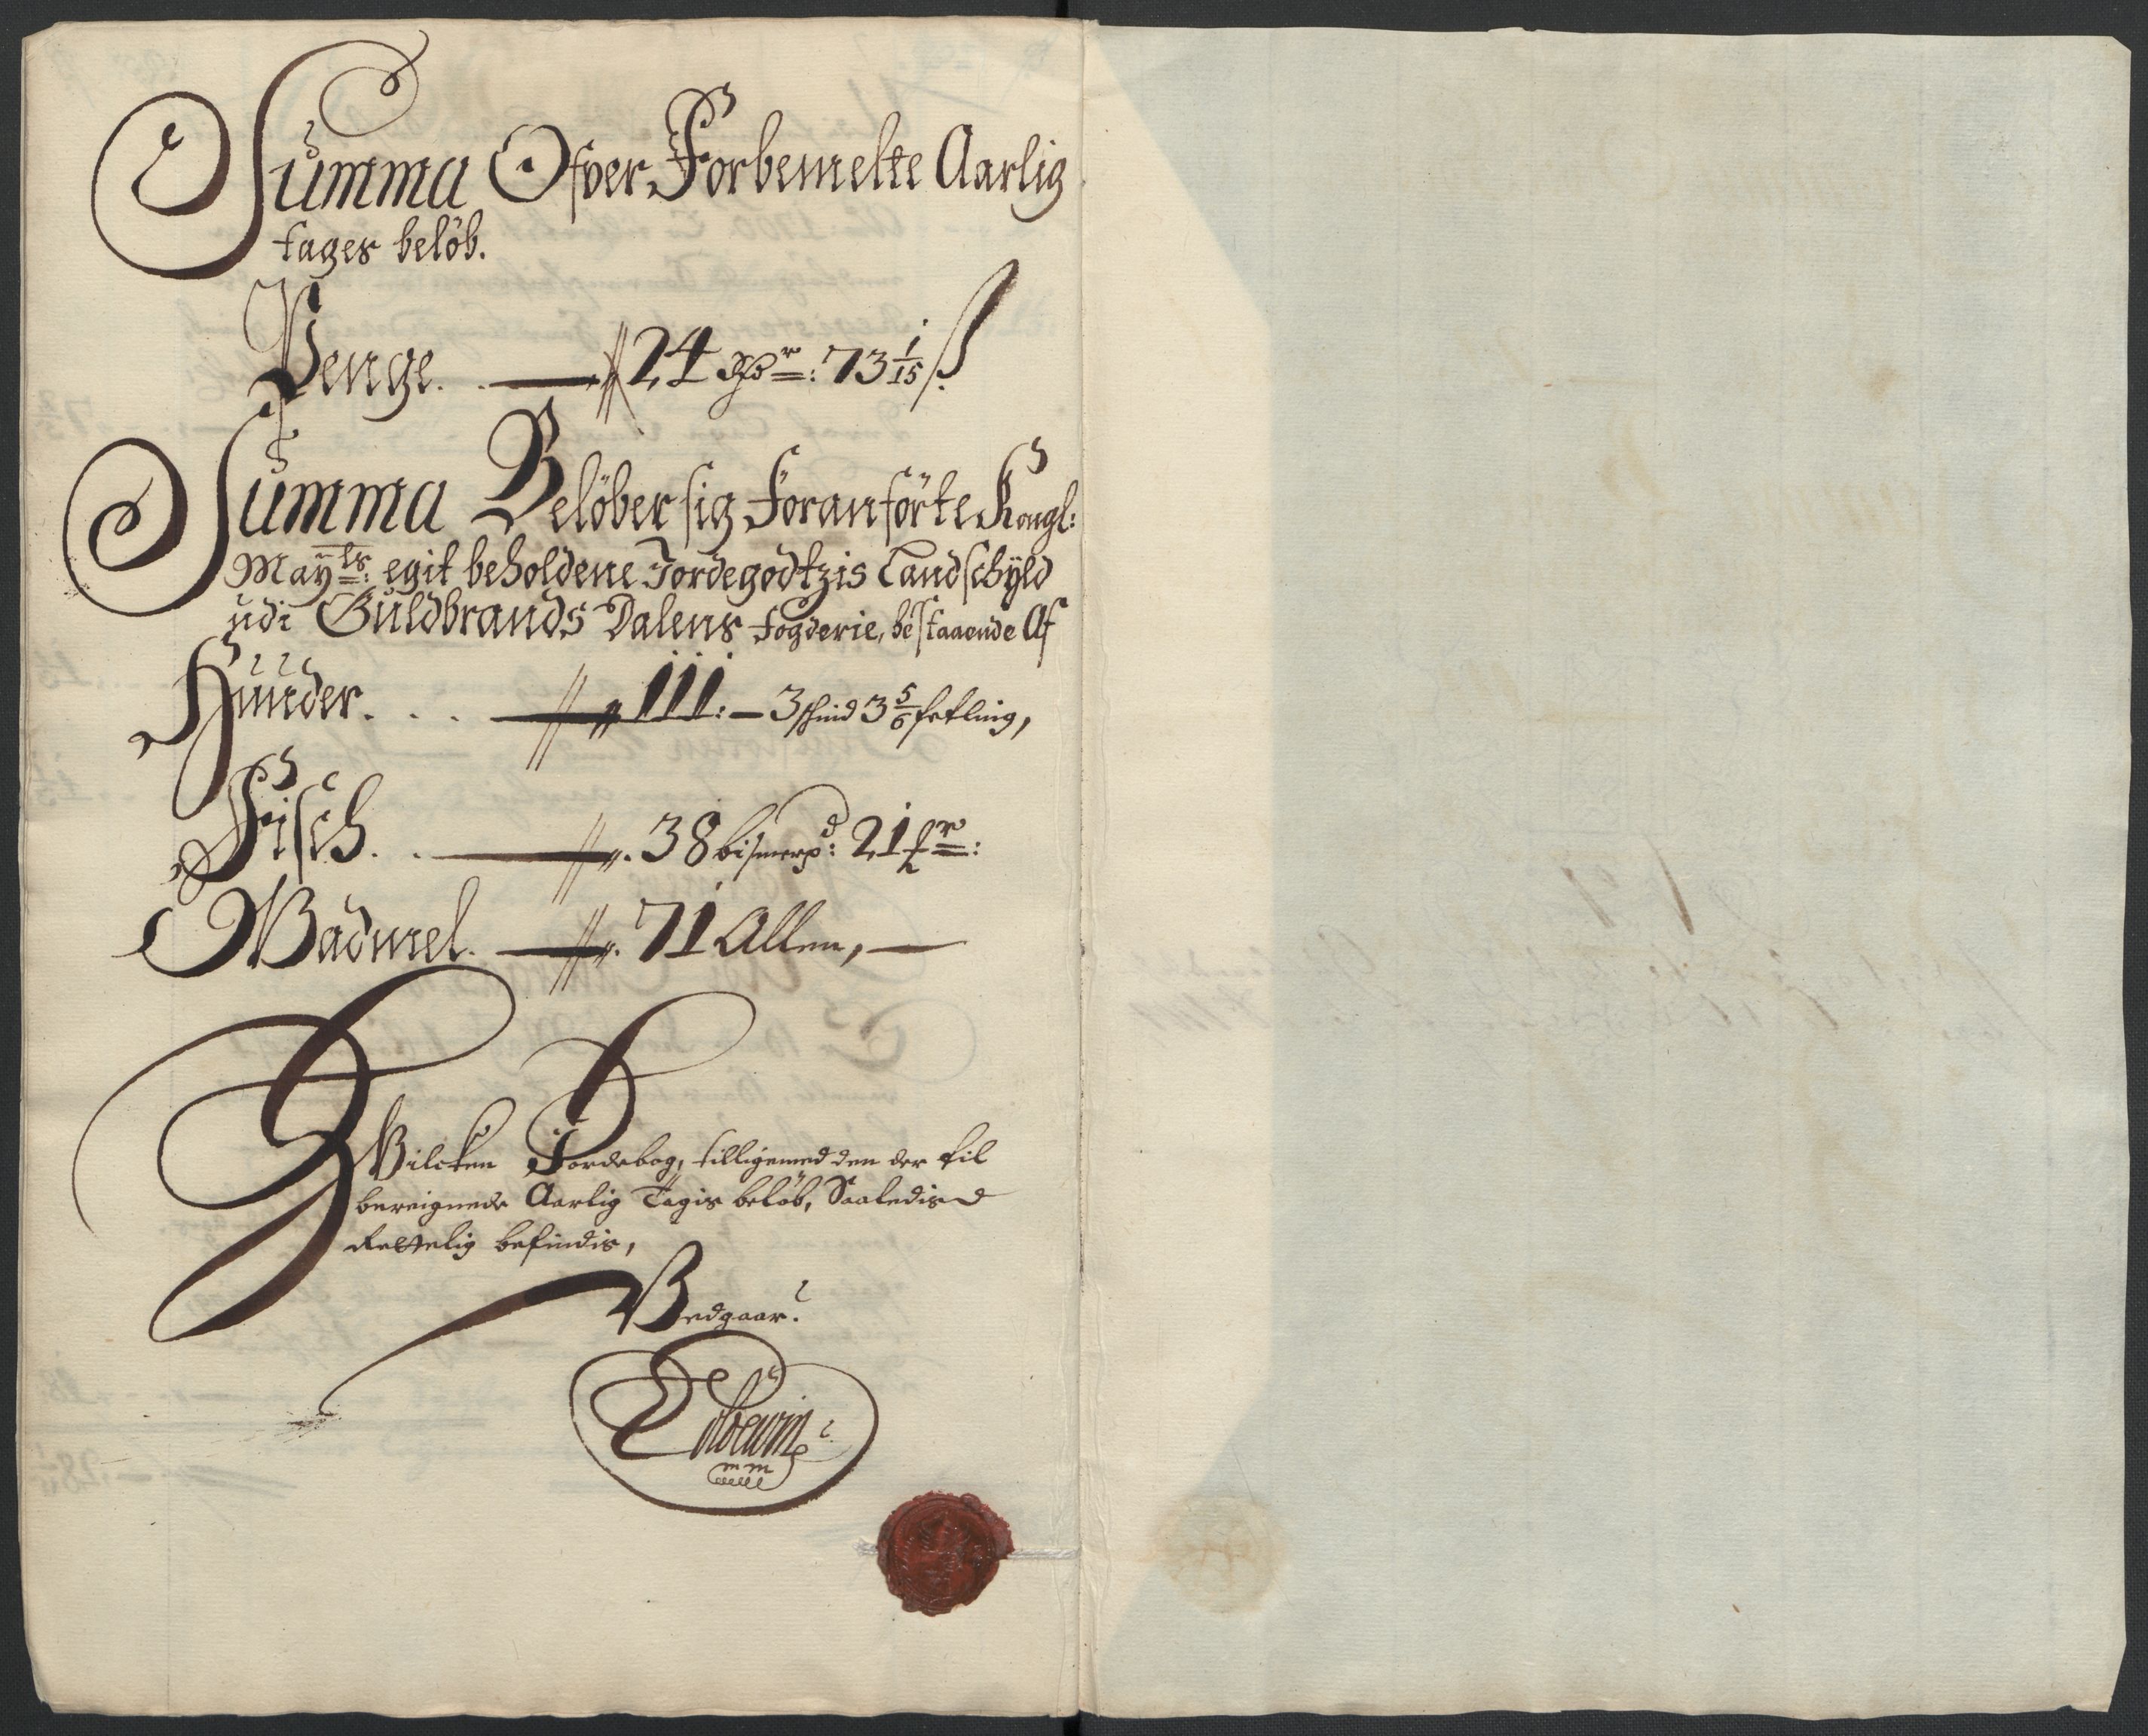 Summa Ofver Forbemelte Aarlig
tages beløb.
Penge. . — 24 Rdr: 73 1/15 ß
Summa Beløber sig Foranførte Kongl:
Mayts: egit beholdene Jordegodtzis Landschÿld
udi Guldbrands Dalens fogderie, bestaaende Af
Huuder. . . — 111: — 3 skind 3 5/6 fetling,
Fisch. . — 38 bismerpd: 21
Wadmel. — 71 Allen, —
Wilcken Jordebog, tilligemed den der til
bereignede Aarlig Tagis beløb, Saaledis
Rettelig befindis,
Bedgaar.
mm